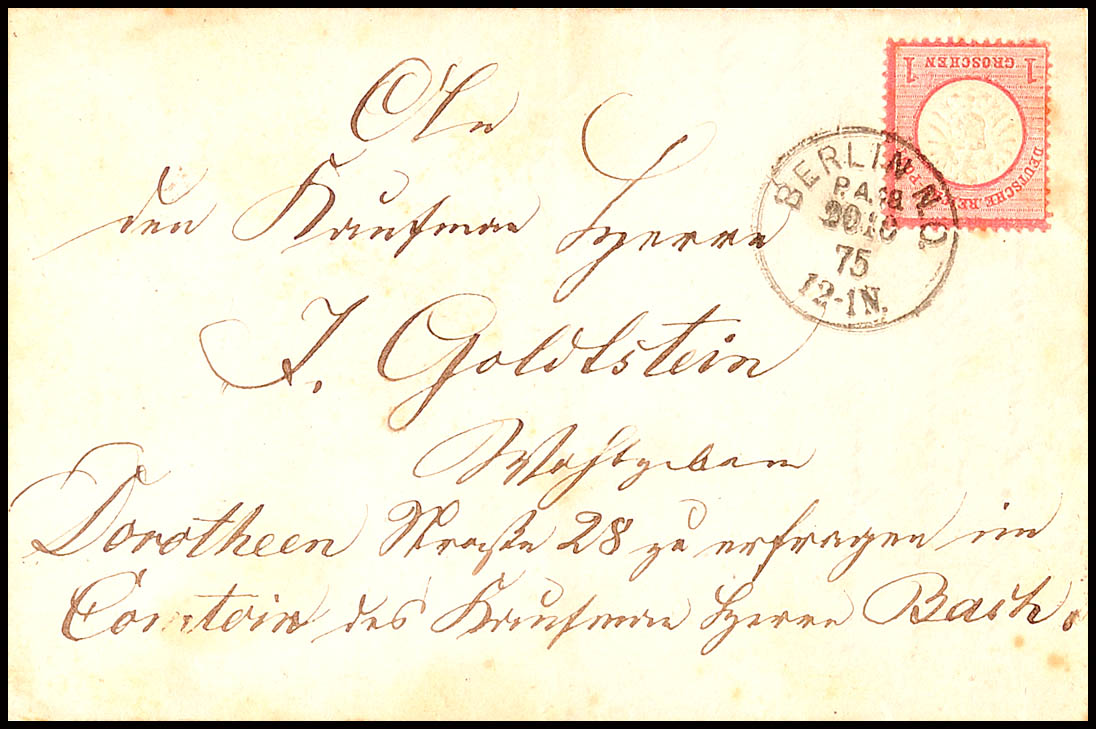 An
den Kaufman Herrn
J. Goldtstein
Wohlgeboren
Dorotheen Straße 28 zu erfragen im
Comtoir des Kaufman Herrn Bach.
1 GROSCHEN 1
DEUTSCHE REICHS-POST
BERLIN N.O.
P.A. 18
20 10
75
12-1N.